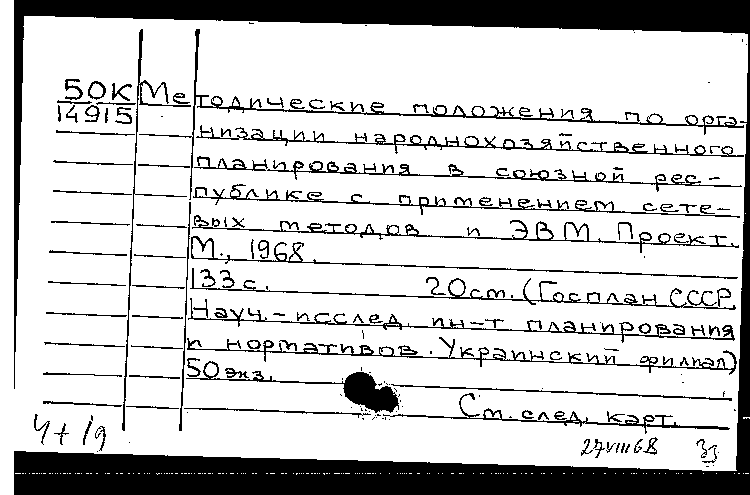 50К Методические положения по орга-
14915
низации народнохозяйственного
планирования в союзной рес-
публике с применением сете-
вых методов и ЭВМ. Проект.
М., 1968.
133с. 20ст. (Госплан СССР.
Науч.-исслед. ин-т планирования
и нормативов. Украинский филиал)
50 экз.
См. след. карт.
27 VIII 68